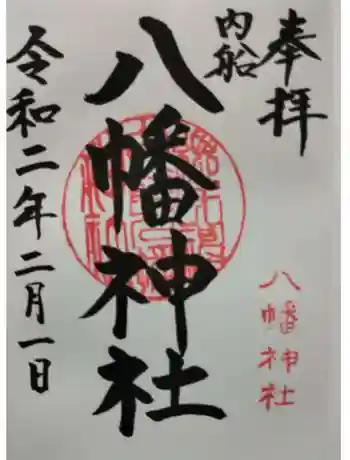 奉拝
内船
八幡神社
八幡神社
令和二年二月一日